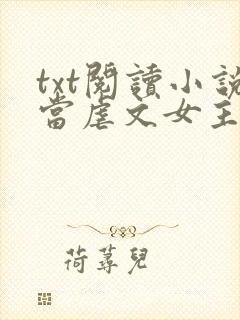 txt閱讀小說
當虐文女主
荷蕁兒